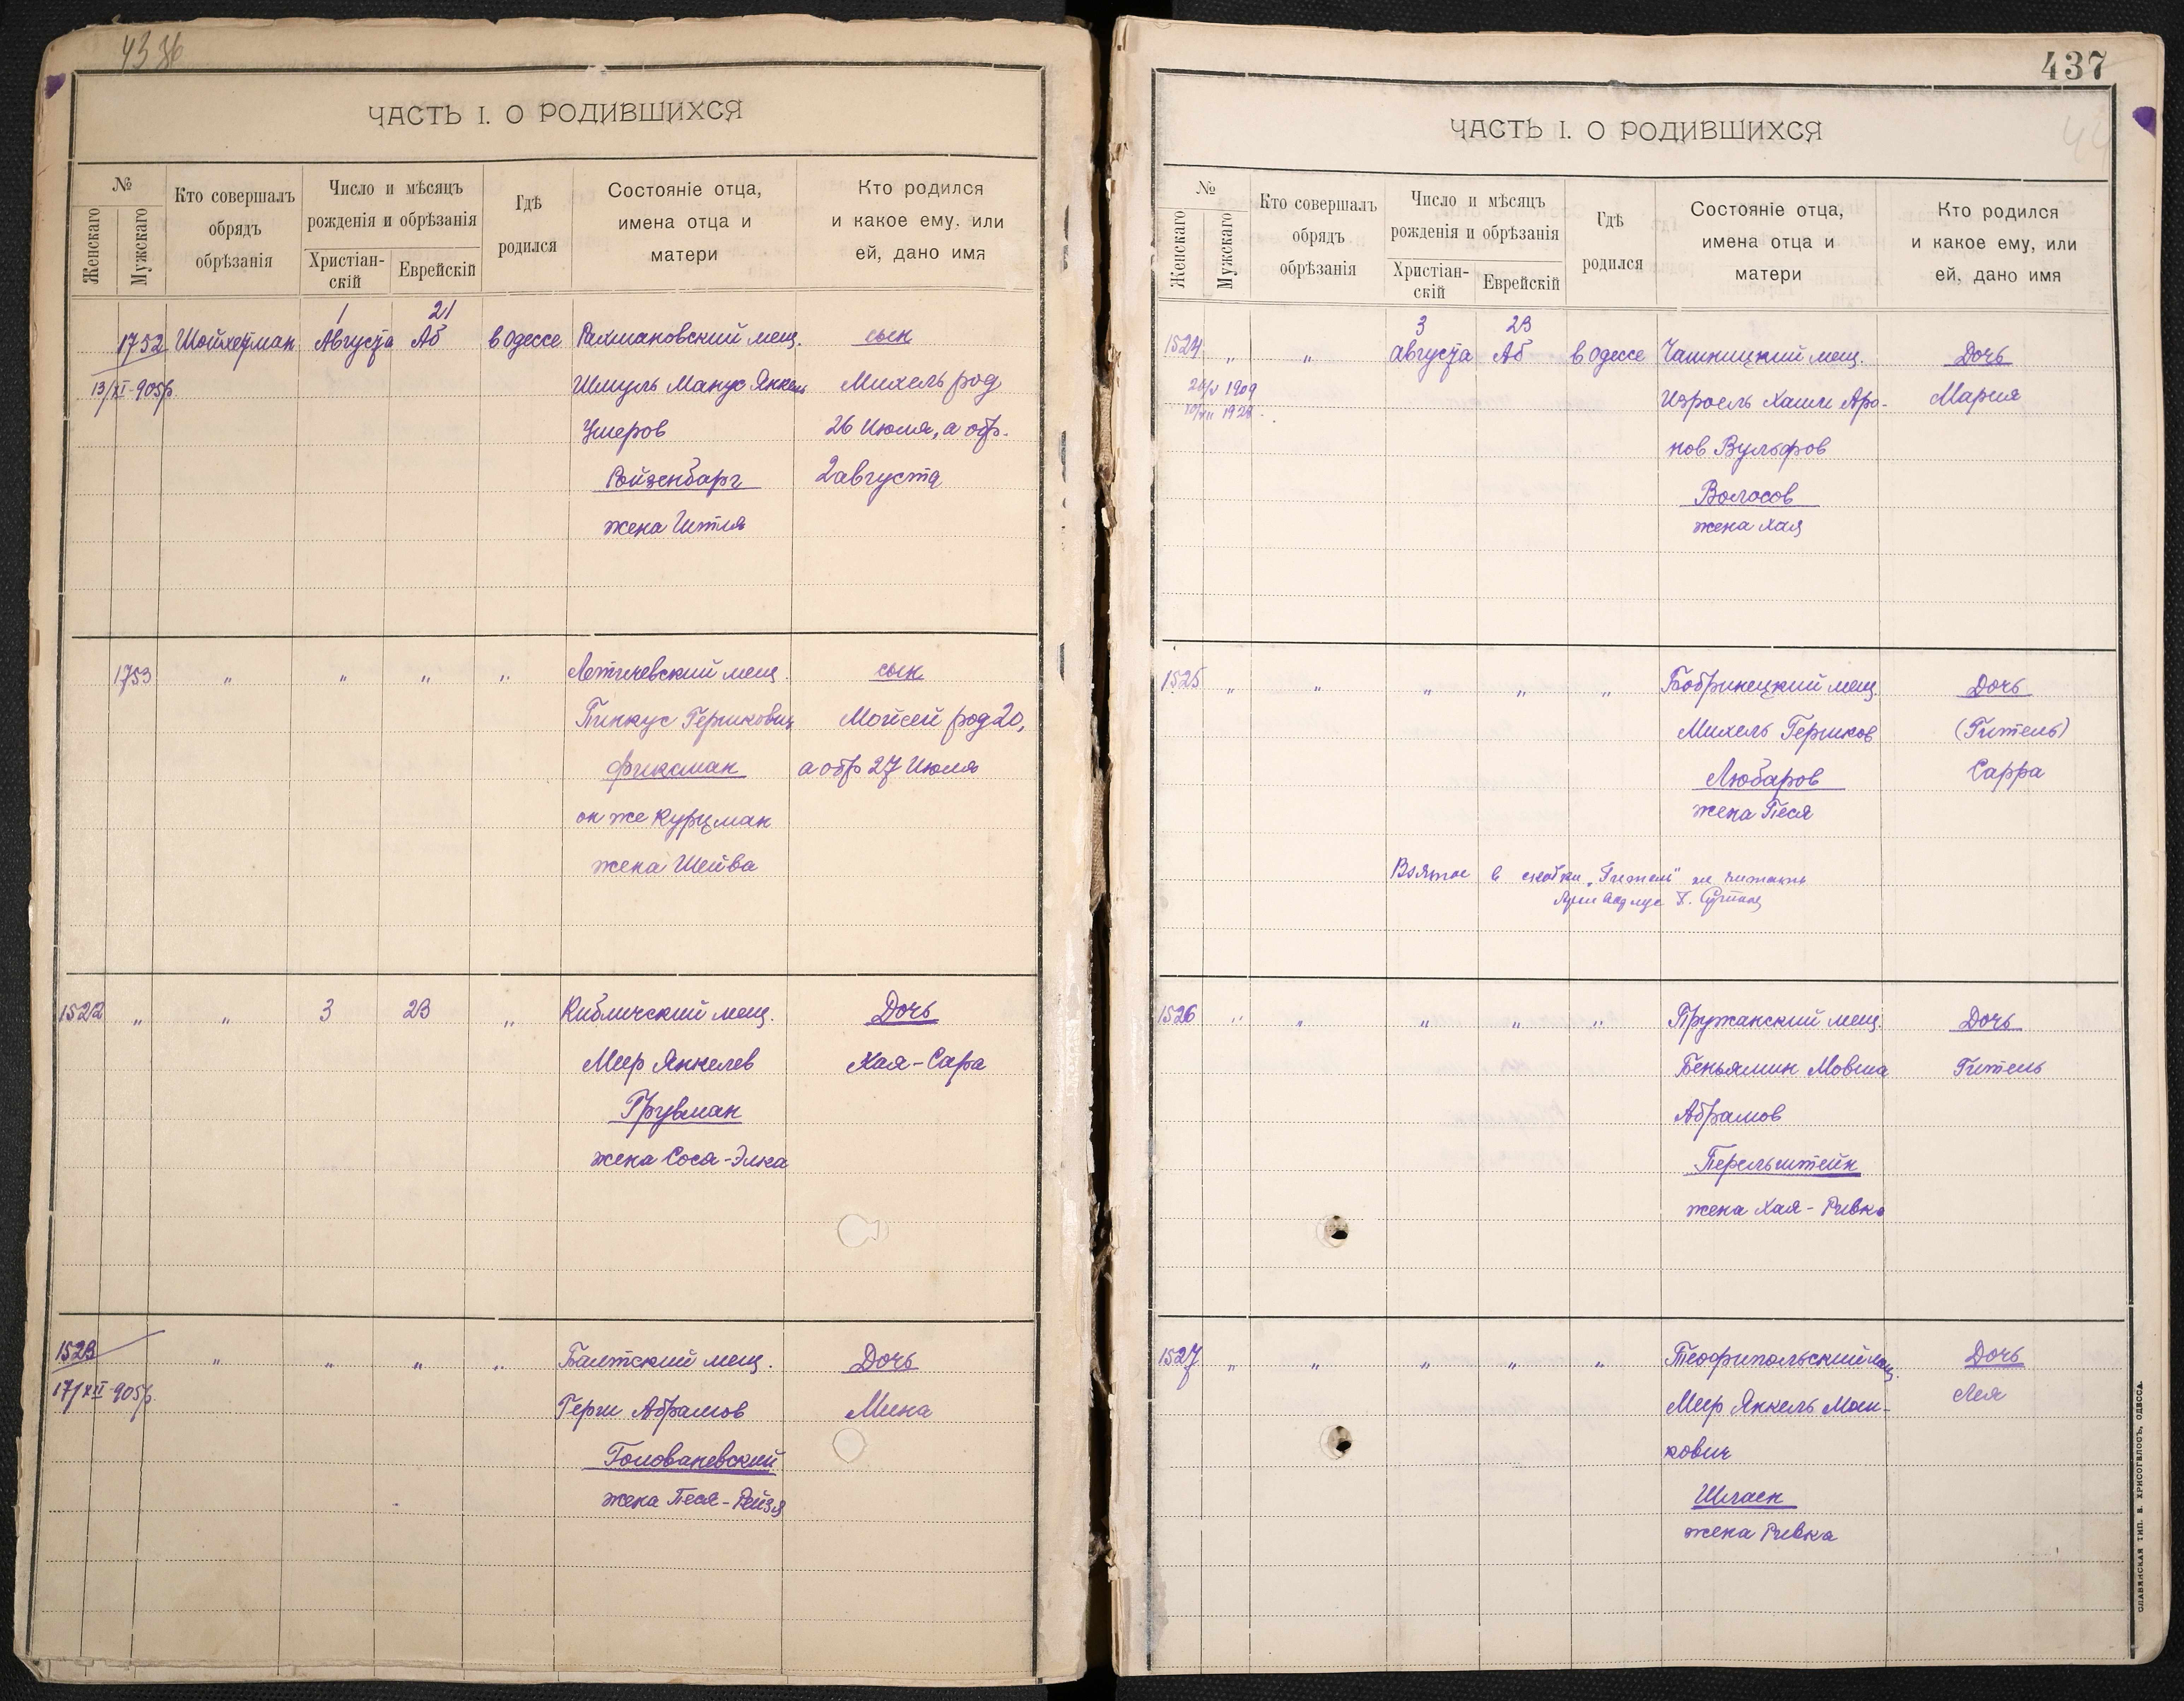 4336
ЧАСТЬ I. О РОДИВШИХСЯ
№
Женскаго
Мужскаго
Кто совершалъ
обрядъ
обрѣзанія
Число и мѣсяцъ
рожденія и обрѣзанія
Христіан-
скій
Еврейскій
Гдѣ
родился
Состояніе отца,
имена отца и
матери
Кто родился
и какое ему, или
ей, дано имя
1 21
1752 Шойхетман Августа Аб в Одессе Рахмановский мещ. сын
13/XI-905р. Шмуль Манус Янкель Михель род
Умеров 26 Июля, а обр.
Ройзенбарг 2 августа
жена Итля
1753 " " " " Летичевский мещ. сын
Пинкус Гершкович Мойсей род 20,
Фиксман а обр 27 Июля
он же Курцман
жена Шейва
1522 " " 3 23 " Кибличский мещ. Дочь
Меер Янкелев Хая-Сара
Грувман
жена Сося-Элка
1523 " " " " Балтский мещ. Дочь
17/XII-905р. Герш Абрамов Мина
Голованевский
жена Песя-Рейзя
437
ЧАСТЬ I. О РОДИВШИХСЯ
№
Женскаго
Мужскаго
Кто совершалъ
обрядъ
обрѣзанія
Число и мѣсяцъ
рожденія и обрѣзанія
Христіан-
скій
Еврейскій
Гдѣ
родился
Состояніе отца,
имена отца и
матери
Кто родился
и какое ему, или
ей, дано имя
3 23
1524 " " августа Аб в Одессе Чашницкий мещ. Дочь
1909 Изроель Хаим Аро- Мария
нов Вульфов
Волосов
жена Хая
1525 " " " " " Бобринецкий мещ. Дочь
Михель Гершков (Гитель)
Любаров Сарра
жена Песя
Взятое в скобки "Гитель" не читать
1526 " " " " " Пружанский мещ. Дочь
Беньямин Мовша Гитель
Абрамов
Перельштейн
жена Хая-Ривка
1527 " " " " " Теофипольский мещ. Дочь
Меер Янкель Мош- Лея
кович
Шлаен
жена Ривка
СЛАВЯНСКАЯ ТИП. В. ХРИСОГЕЛОСЪ, ОДЕССА.